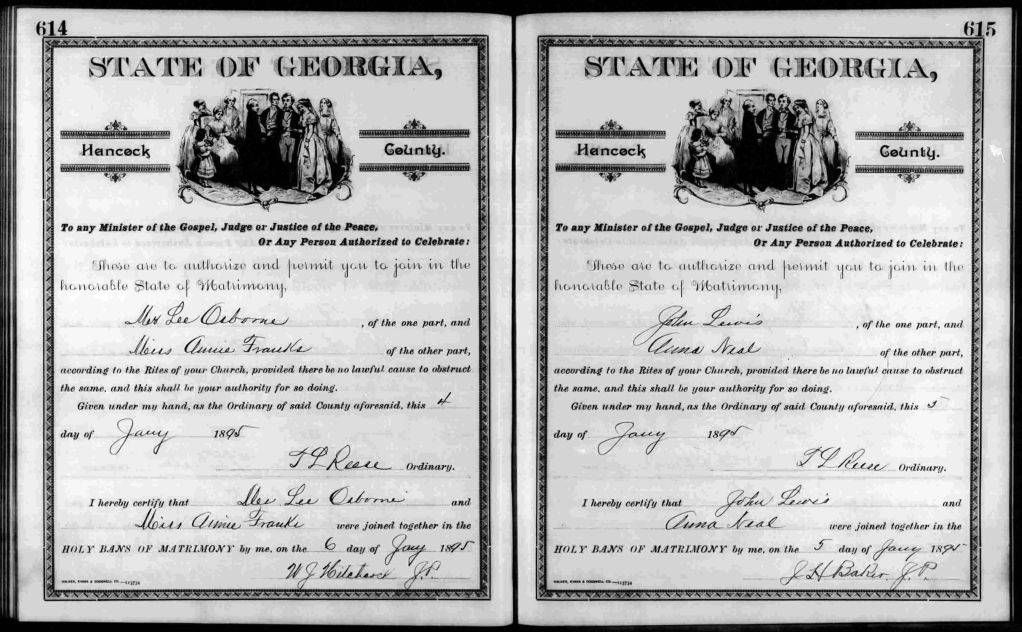 614
STATE OF GEORGIA,
Hancock County.
To any Minister of the Gospel, Judge or Justice of the Peace,
Or Any Person Authorized to Celebrate:
These are to authorize and permit you to join in the
honorable State of Matrimony,
Mr Lee Osborne, of the one part, and
Miss Annie Franks of the other part,
according to the Rites of your Church, provided there be no lawful cause to obstruct
the same, and this shall be your authority for so doing.
Given under my hand, as the Ordinary of said County aforesaid, this 4
day of Jany 1895
T L Reese Ordinary.
I hereby certify that Mr Lee Osborne and
Miss Annie Franks were joined together in the
HOLY BANS OF MATRIMONY by me, on the 6 day of Jany 1895
W J J.P.
615
STATE OF GEORGIA,
Hancock County.
To any Minister of the Gospel, Judge or Justice of the Peace,
Or Any Person Authorized to Celebrate:
These are to authorize and permit you to join in the
honorable State of Matrimony,
John Lewis, of the one part, and
Anna Neal of the other part,
according to the Rites of your Church, provided there be no lawful cause to obstruct
the same, and this shall be your authority for so doing.
Given under my hand, as the Ordinary of said County aforesaid, this 5
day of Jany 1895
T L Reese Ordinary.
I hereby certify that John Lewis and
Anna Neal were joined together in the
HOLY BANS OF MATRIMONY by me, on the 5 day of Jany 1895
J H Baker J.P.